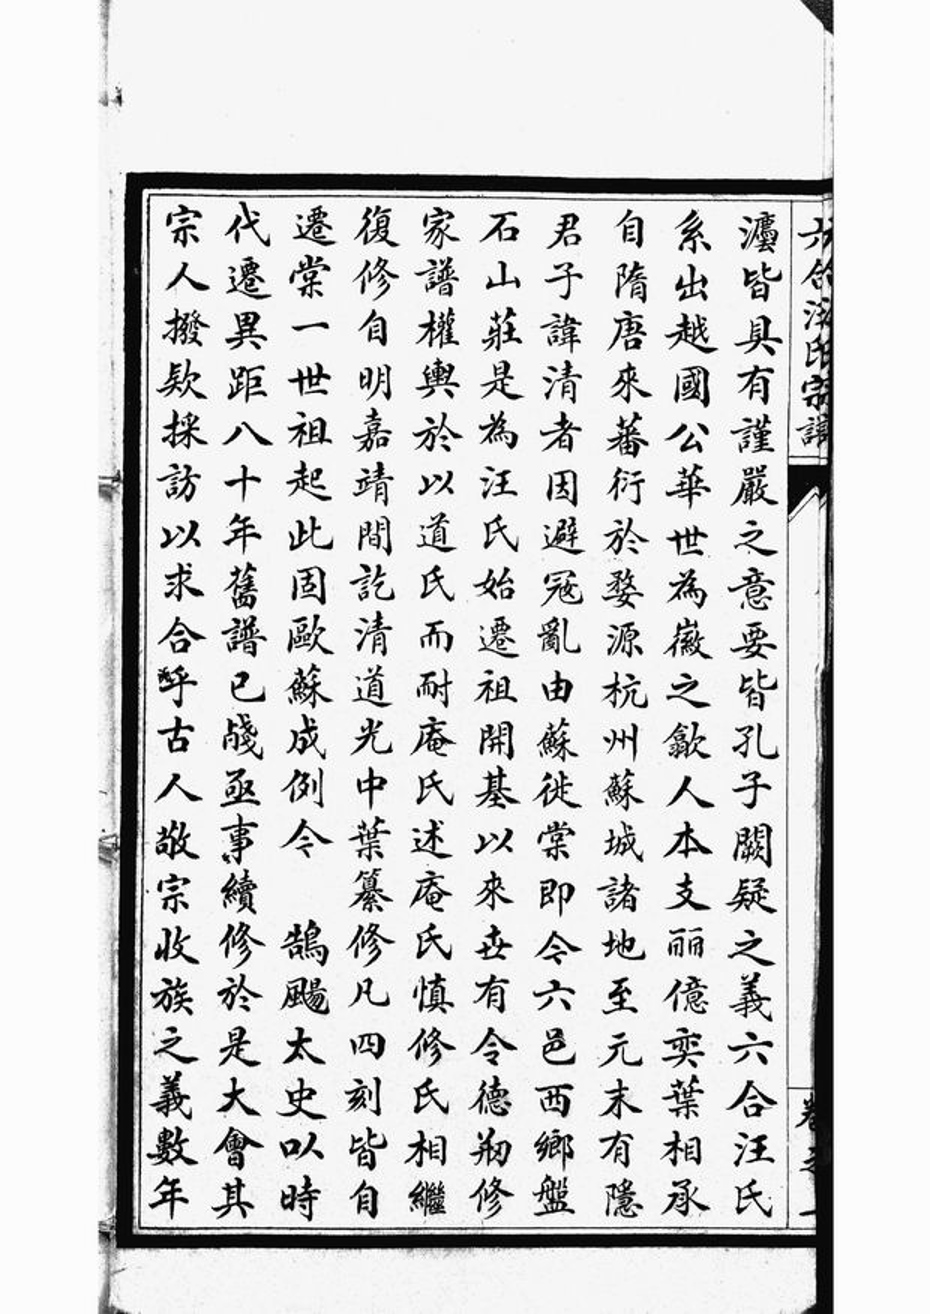 六合汪氏宗譜
卷之
灋皆具有謹嚴之意要皆孔子闕疑之義六合汪氏
系出越國公華世為徽之歙人本支丽億奕葉相承
自隋唐來蕃衍於婺源杭州蘇城諸地至元末有隱
君子諱清者因避冦亂由蘇徙棠即今六邑西鄉盤
石山莊是為汪氏始遷祖開基以來世有令德刱修
家譜權輿於以道氏而耐庵氏述庵氏慎修氏相繼
復修自明嘉靖間訖清道光中葉纂修凡四刻皆自
遷棠一世祖起此固歐蘇成例今　鵠颺太史以時
代遷異距八十年舊譜已殘亟事續修於是大會其
宗人撥欵採訪以求合乎古人敬宗收族之義數年